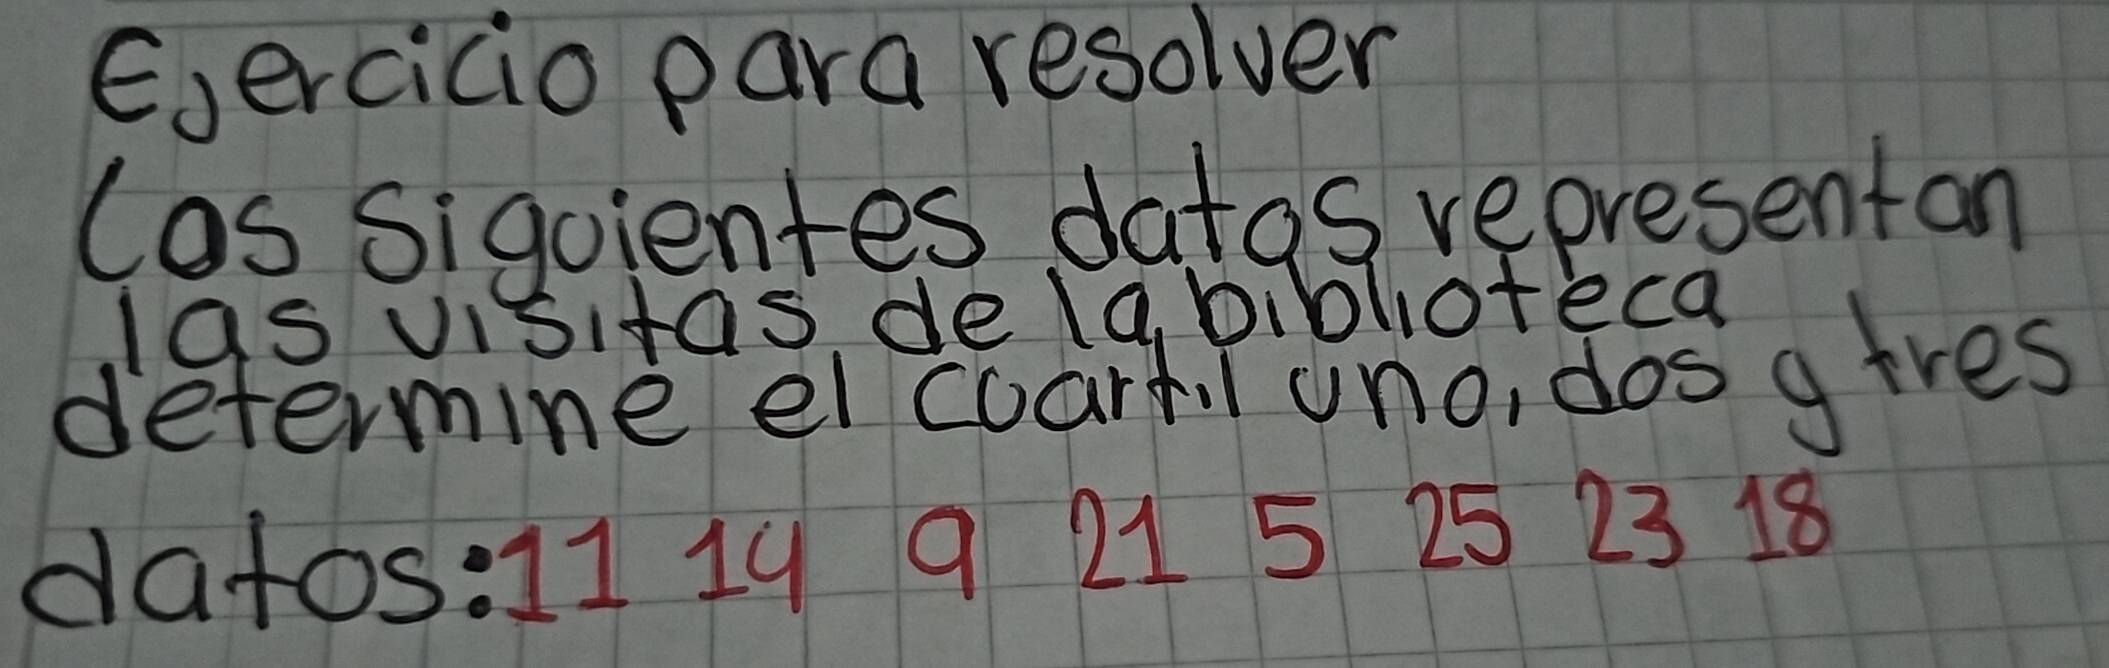 Ejercicio para resolver
Los siguientes datos representan
las visitas de la biblioteca
determine el cuartil uno, dos y tres
datos: 11 14 9 21 5 25 23 18